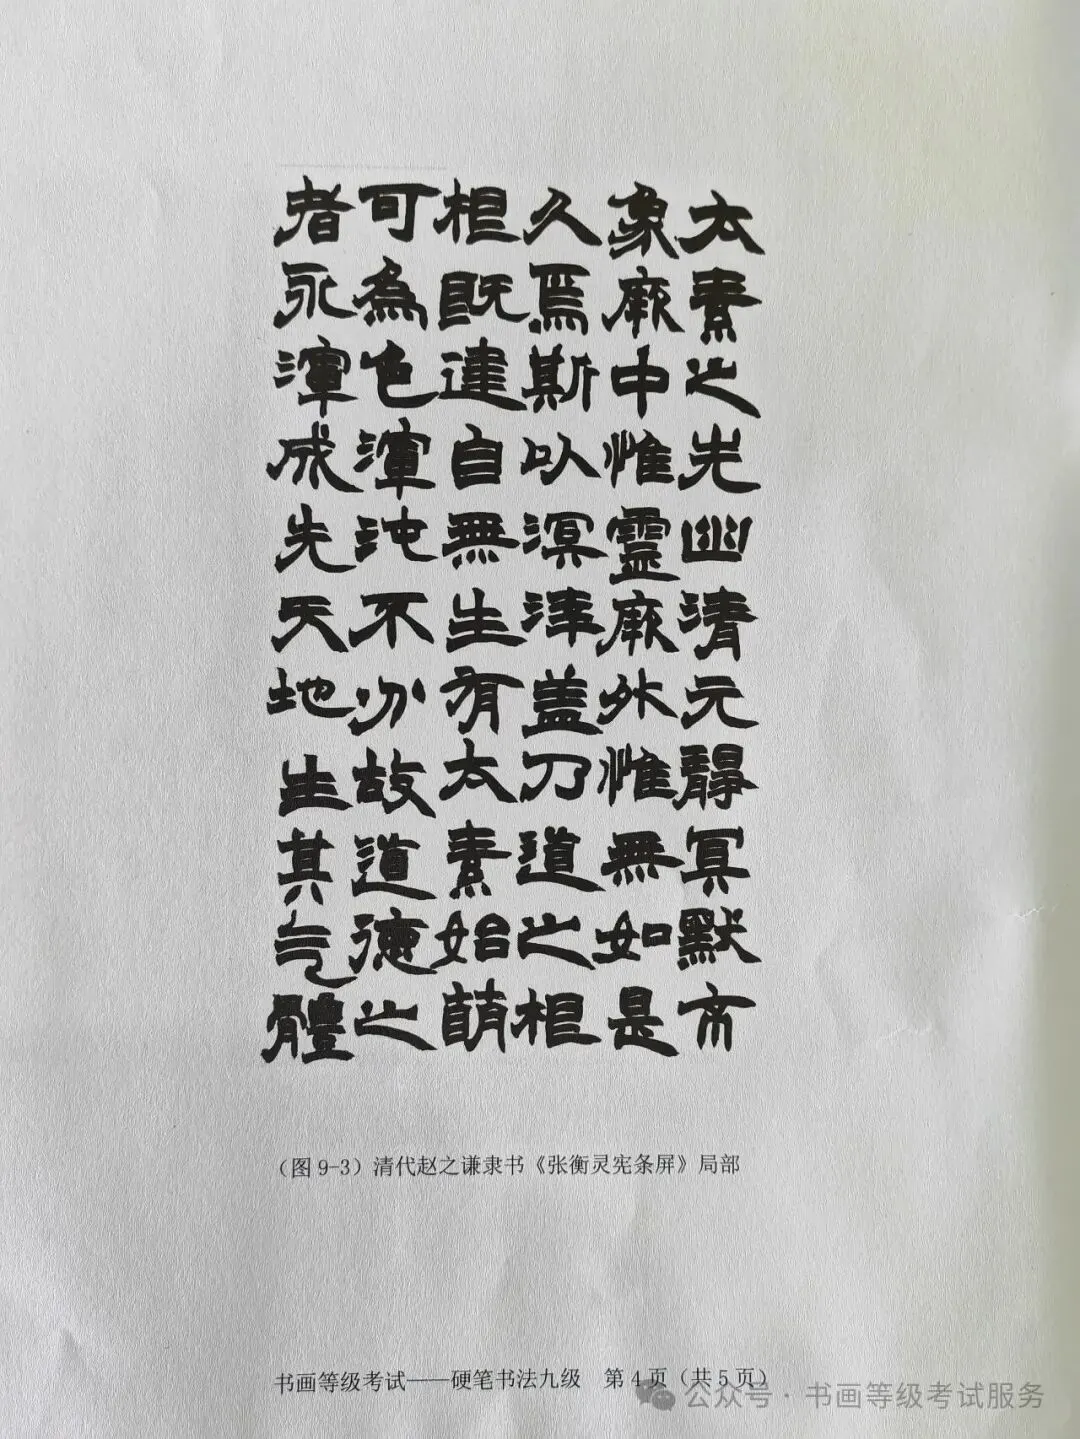 太素之先幽清元靜冥默不
象厥中惟靈厥外惟無如是
久焉斯以溟涬盖乃道之根
根既建自無生有太素始萌
可為色渾沌不分故道德之
者永渾成先天地生其气體
（图9-3）清代赵之谦隶书《张衡灵宪条屏》局部
书画等级考试——硬笔书法九级 第4页（共5页）
公众号·书画等级考试服务